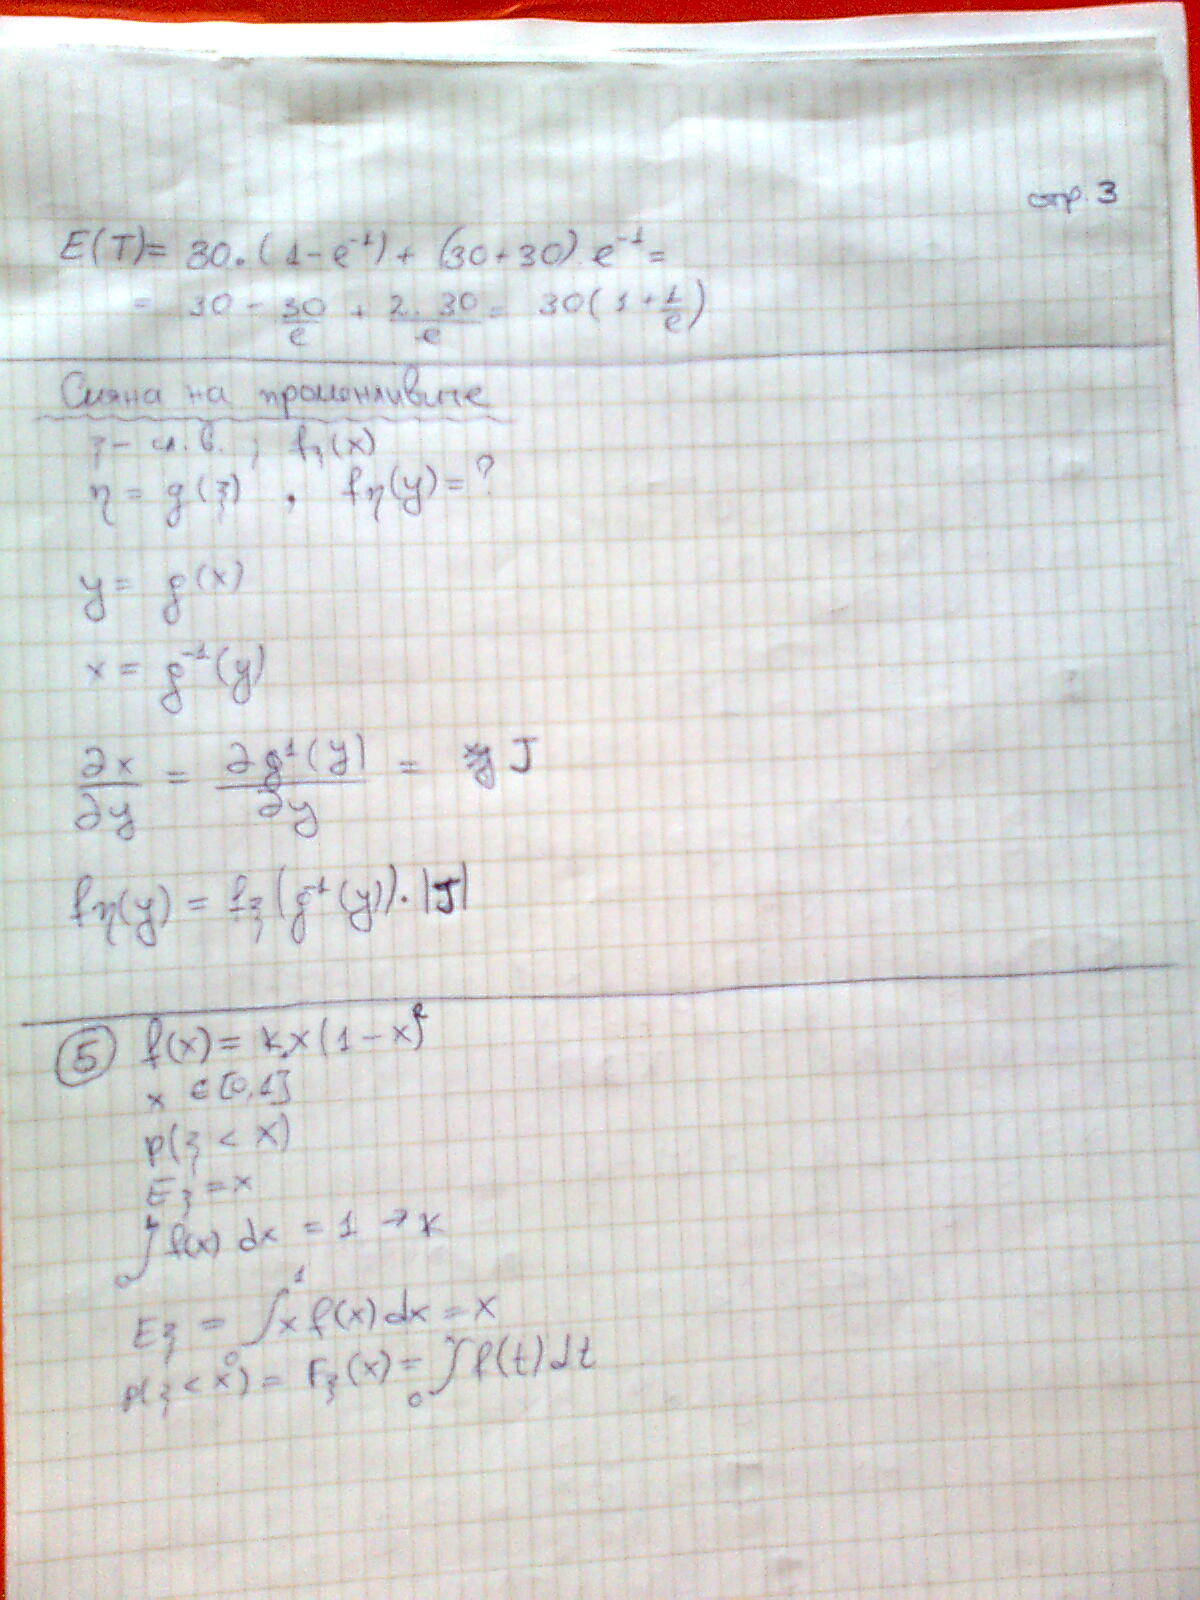 стр. 3
E(T) = 30.(1-e⁻¹) + (30+30).e⁻¹ =
= 30 - 30/e + 2.30/e = 30(1 + 1/e)
Смяна на променливите
ξ - сл. в. ; fξ(x)
η = g(ξ) , fη(y) = ?
y = g(x)
x = g⁻¹(y)
∂x/∂y = ∂g⁻¹(y)/∂y = J
fη(y) = fξ(g⁻¹(y)).|J|
5 f(x) = k.x(1-x)²
x ∈ [0,1]
p(ξ < x)
Eξ = x
₀∫¹ f(x) dx = 1 → k
Eξ = ₀∫¹ x f(x) dx = x
p(ξ < x) = Fξ(x) = ₀∫ˣ f(t) dt